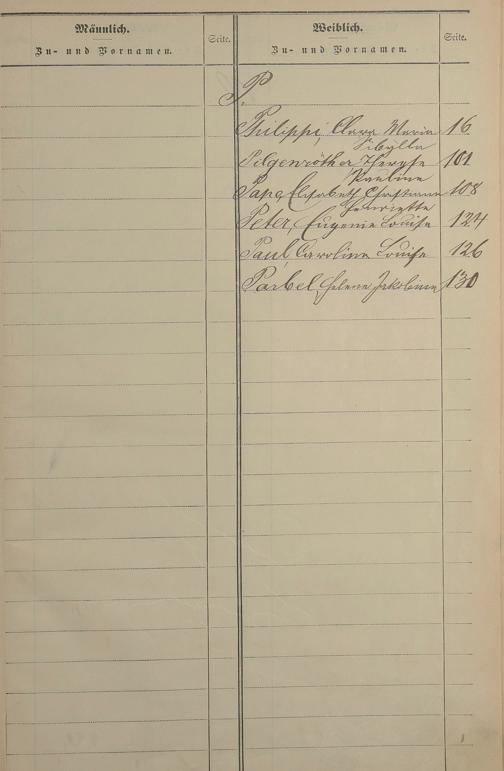 Männlich.
Zu- und Vornamen.
Seite.
Weiblich.
Zu- und Vornamen.
Seite.
P.
Philippi, Clara Maria 16
Sibylla
Pilgenröther Therese 101
Pauline
Pape, Elisabeth Christiane 108
Henriette
Peter, Eugenie Louise 124
Paul, Caroline Louise 126
Parbel, Helene Jakobine 130